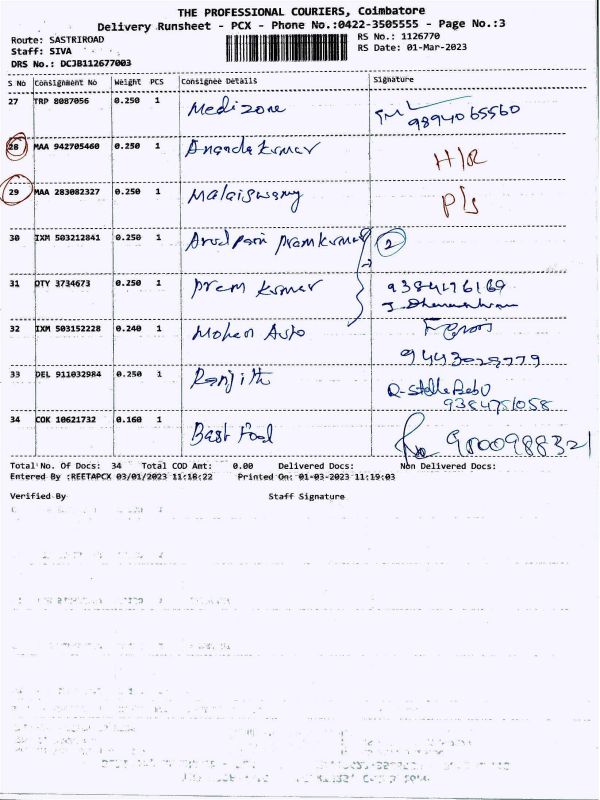 THE PROFESSIONAL COURIERS, Coimbatore
Delivery Runsheet - PCX - Phone No.:0422-3505555 - Page No.:3
Route: SASTRIROAD
RS No.: 1126770
Staff: SIVA
RS Date: 01-Mar-2023
DRS No.: DCJB112677003
S No Consignment No Weight PCS Consignee Details Signature
27 TRP 8087056 0.250 1 Medizone 9894065560
28 MAA 942705460 0.250 1 Anandakumar H/R
29 MAA 283082327 0.250 1 Malaiswamy P/S
30 IXM 503212841 0.250 1 premkumar 2
31 OTY 3734673 0.250 1 prem kumar 9384176169
32 IXM 503152228 0.240 1 Mohan Auto
9443029779
33 DEL 911032984 0.250 1 Ranjith
9384751058
34 COK 10621732 0.160 1 Best Food 9000988321
Total No. Of Docs: 34 Total COD Amt: 0.00 Delivered Docs: Non Delivered Docs:
Entered By :REETAPCX 03/01/2023 11:18:22 Printed On: 01-03-2023 11:19:03
Verified By Staff Signature